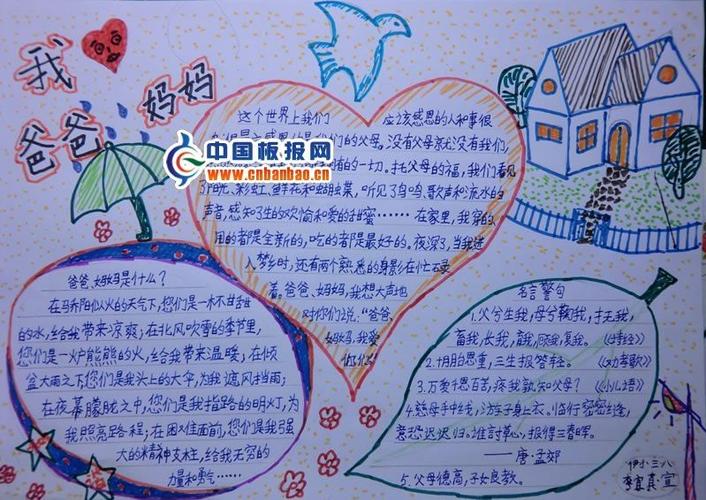 我
爸爸
妈妈
中国板报网
www.cnbanbao.cn
这个世界上我们 应该感恩的人和事很
们的父母。没有父母就没有我们,
的一切。托父母的福,我们看见
了阳光、彩虹、鲜花和蝴蝶,听见了鸟鸣、歌声和流水的
声音,感知了生的欢愉和爱的甜蜜……在家里,我穿的
用的都是全新的,吃的都是最好的。夜深了,当我进
入梦乡时,还有两个熟悉的身影在忙碌
着。爸爸、妈妈,我想大声地
对你们说:“爸爸、
妈妈,我爱
你们!
爸爸、妈妈是什么?
在马乔阳似火的天气下,您们是一杯甘甜
的水,给我带来凉爽;在北风吹雪的季节里,
您们是一炉熊熊的火,给我带来温暖;在倾
盆大雨之下您们是我头上的大伞,为我遮风挡雨;
在夜幕朦胧之中,您们是我指路的明灯,为
我照亮路程;在困难面前,您们是我强
大的精神支柱,给我无穷的
力量和勇气……
名言警句
1.父兮生我,母兮鞠我,抚我,
畜我,长我,育我,顾我,复我。《诗经》
2.十月胎恩重,三生报答轻。《劝孝歌》
3.万爱千恩百苦,疼我孰知父母?《小儿语》
4.慈母手中线,游子身上衣。临行密密缝,
意恐迟迟归。谁言寸草心,报得三春晖。
——唐·孟郊
5.父母德高,子女良教。
伊小·三八
李宜真·宣